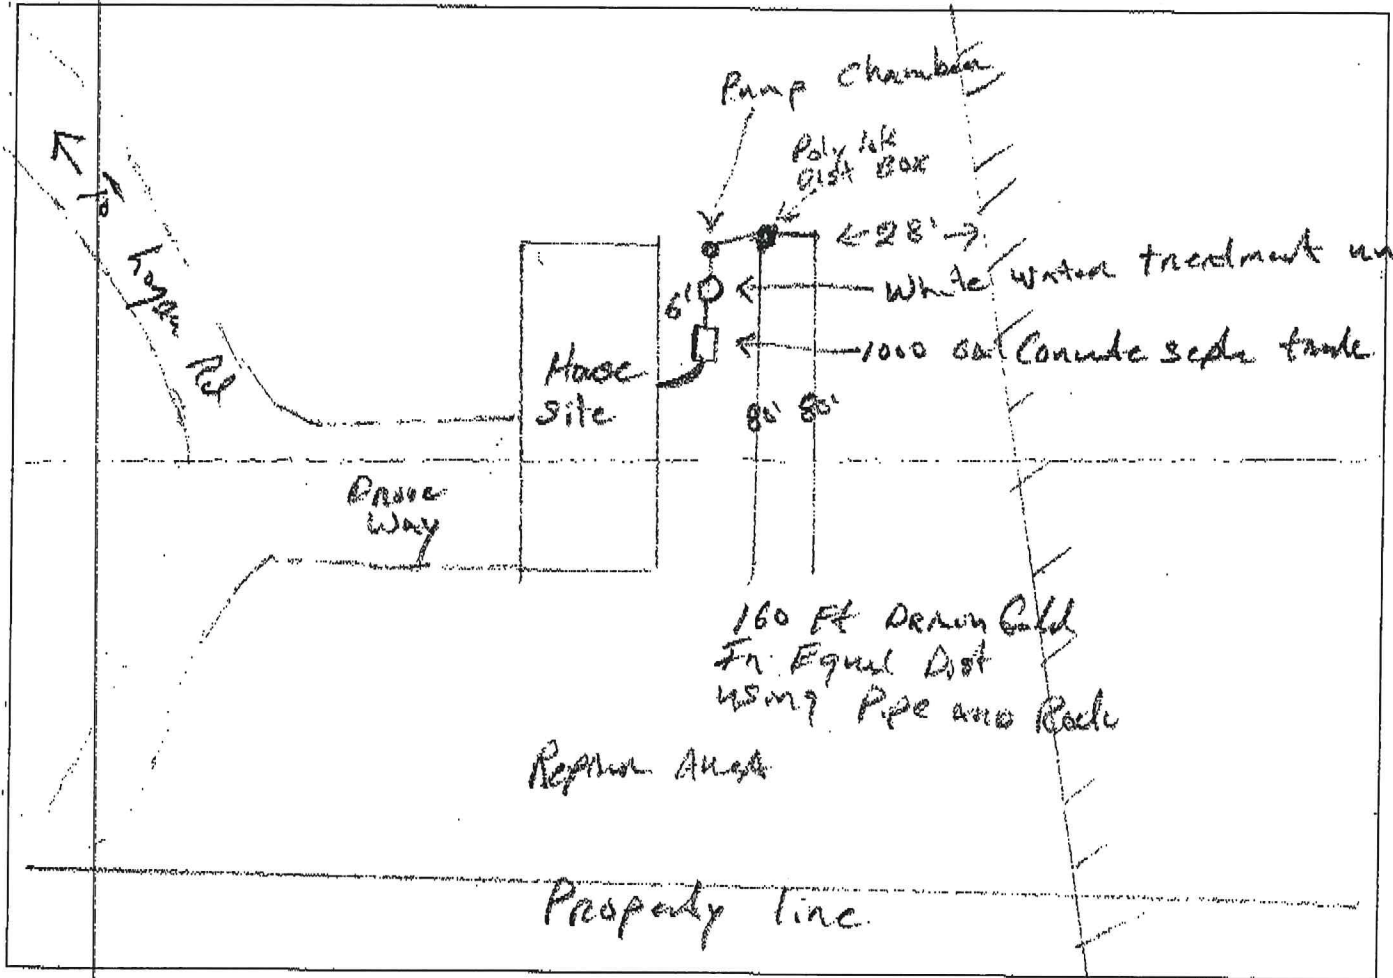 Pump Chamber
Poly lok
Dist Box
← 28' →
To
Rd
White water treatment un
6'
1000 Gal Concrete septic tank
House
Site
80' 80'
Drive
Way
160 Ft Drain field
In Equal Dist
using Pipe and Rock
Repair Area
Property line